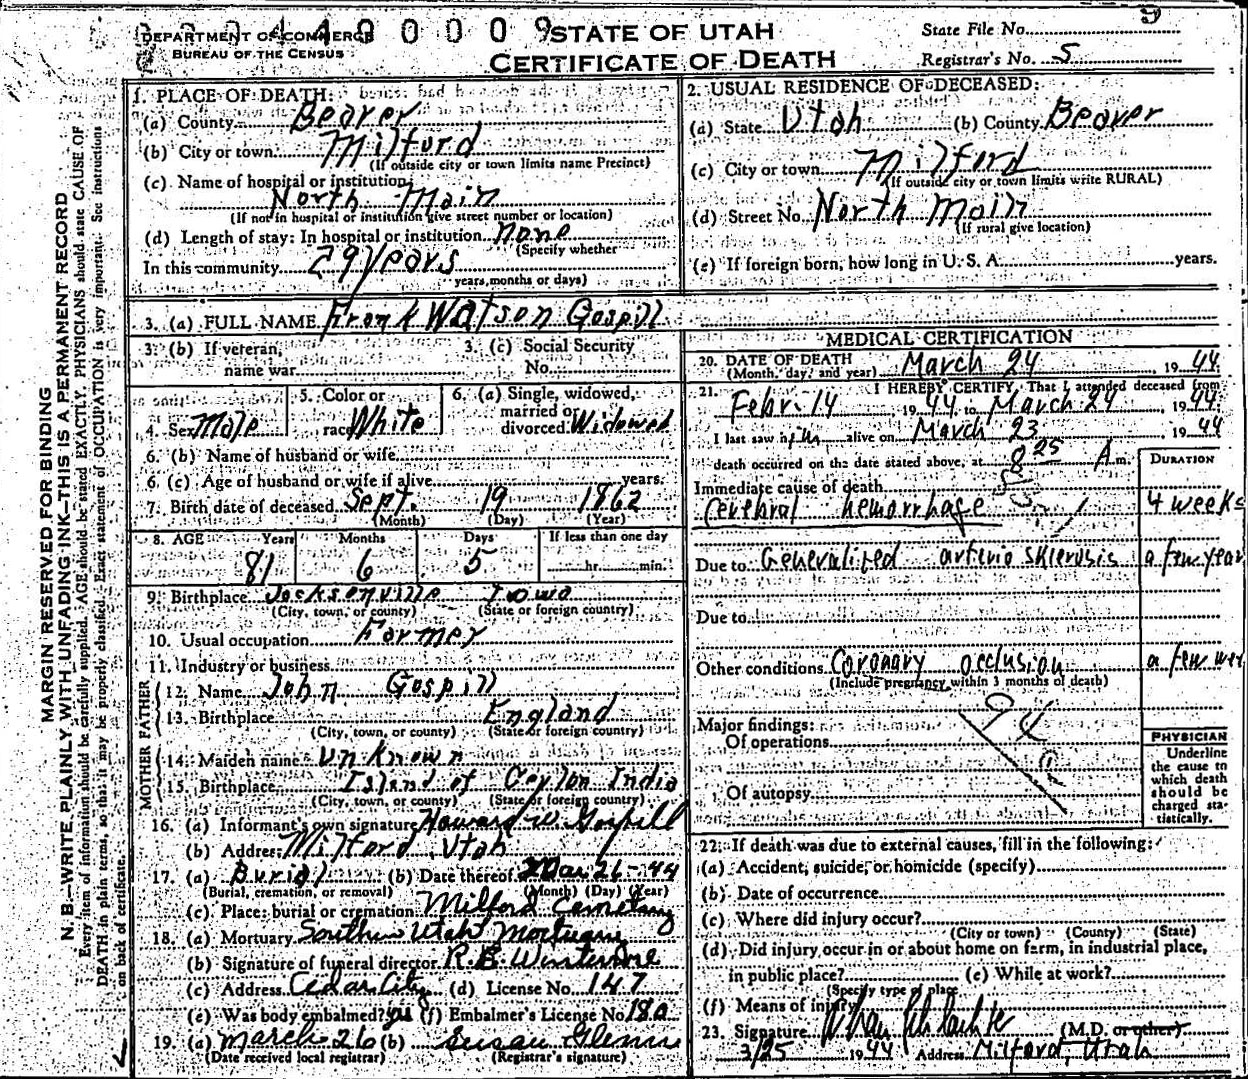 DEPARTMENT OF COMMERCE
BUREAU OF THE CENSUS
0 0 0 9
STATE OF UTAH
CERTIFICATE OF DEATH
State File No. 9
Registrar's No. 5
MARGIN RESERVED FOR BINDING
N. B.—WRITE PLAINLY, WITH UNFADING INK—THIS IS A PERMANENT RECORD
Every item of information should be carefully supplied. AGE should be stated EXACTLY. PHYSICIANS should state CAUSE OF
DEATH in plain terms, so that it may be properly classified. Exact statement of OCCUPATION is very important. See instructions
on back of certificate.
1. PLACE OF DEATH:
(a) County Beaver
(b) City or town Milford
(If outside city or town limits name Precinct)
(c) Name of hospital or institution:
North Main
(If not in hospital or institution give street number or location)
(d) Length of stay: In hospital or institution none
(Specify whether
In this community 29 years
years, months or days)
2. USUAL RESIDENCE OF DECEASED:
(a) State Utah (b) County Beaver
(c) City or town Milford
(If outside city or town limits write RURAL)
(d) Street No. North Main
(If rural give location)
(e) If foreign born, how long in U. S. A. years.
3. (a) FULL NAME Frank Watson Gospill
3. (b) If veteran, name war
3. (c) Social Security No.
4. Sex Male
5. Color or race White
6. (a) Single, widowed, married or divorced Widowed
6. (b) Name of husband or wife
6. (c) Age of husband or wife if alive years.
7. Birth date of deceased Sept. 19 1862
(Month) (Day) (Year)
8. AGE Years Months Days If less than one day
81 6 5 hr. min.
9. Birthplace Jacksonville Iowa
(City, town, or county) (State or foreign country)
10. Usual occupation Farmer
11. Industry or business
FATHER
12. Name John Gospill
13. Birthplace England
(City, town, or county) (State or foreign country)
MOTHER
14. Maiden name Unknown
15. Birthplace Island of Ceylon India
(City, town, or county) (State or foreign country)
16. (a) Informant's own signature Howard W. Gospill
(b) Address Milford Utah
17. (a) Burial (b) Date thereof Mar 26-44
(Burial, cremation, or removal) (Month) (Day) (Year)
(c) Place: burial or cremation Milford Cemetery
18. (a) Mortuary Southern Utah Mortuary
(b) Signature of funeral director R.B.
(c) Address Cedar City (d) License No. 147
(e) Was body embalmed? yes (f) Embalmer's License No. 180
19. (a) March 26 (b) Susan Glenn
(Date received local registrar) (Registrar's signature)
MEDICAL CERTIFICATION
20. DATE OF DEATH
(Month, day, and year) March 24 1944
21. I HEREBY CERTIFY, That I attended deceased from
Febr. 14 1944 to March 24, 1944
I last saw him alive on March 23 1944
death occurred on the date stated above, at 8 25 A m.
DURATION
Immediate cause of death
Cerebral hemorrhage 4 weeks
Due to Generalized arterio sklerosis a few year
Due to
Other conditions Coronary occlusion a few
(Include pregnancy within 3 months of death)
Major findings:
Of operations
94a
Of autopsy
PHYSICIAN
Underline
the cause to
which death
should be
charged sta-
tistically.
22. If death was due to external causes, fill in the following:
(a) Accident, suicide, or homicide (specify)
(b) Date of occurrence
(c) Where did injury occur?
(City or town) (County) (State)
(d) Did injury occur in or about home on farm, in industrial place,
in public place? (e) While at work?
(Specify type of place
(f) Means of injury
23. Signature (M.D. or other)
3/25 1944 Address Milford, Utah